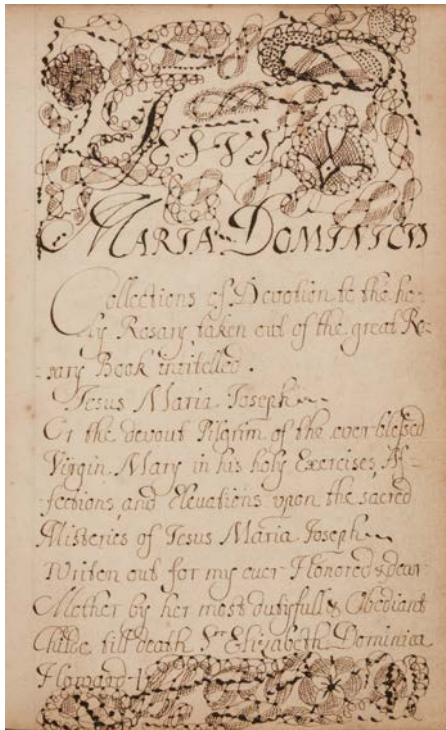 JESVS
MARIA DOMINICVS
Collections of Devotion to the ho-
ly Rosary taken out of the great Ro-
sary Book intitelled.
Jesus Maria Joseph
Or the devout Pilgrim of the ever blessed
Virgin Mary in his holy Exercises, Af-
fections, and Elevations upon the sacred
Misteries of Jesus Maria Joseph
Writen out for my ever Honored & dear
Mother by her most dutyfull & Obediant
Childe till death Sr Elizabeth Dominica
Howard